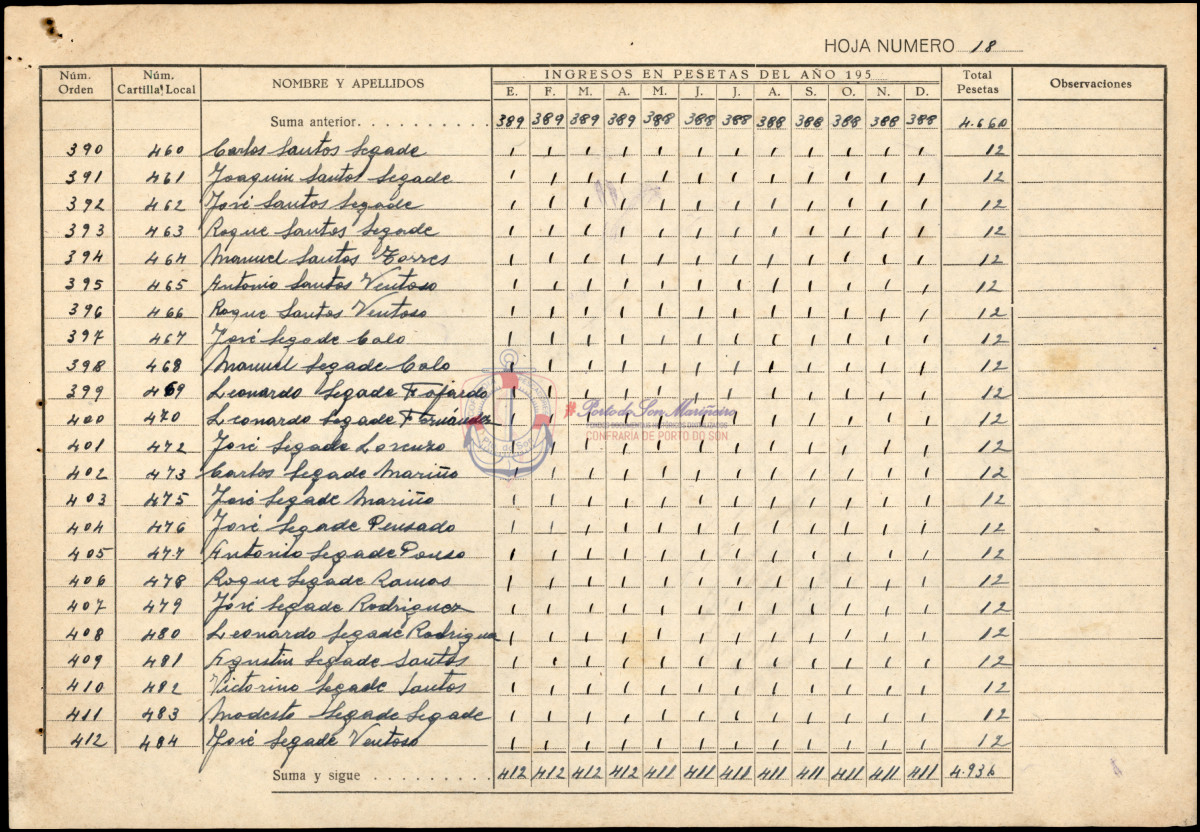 HOJA NUMERO 18
Núm. Orden Núm. Cartilla Local NOMBRE Y APELLIDOS INGRESOS EN PESETAS DEL AÑO 195 Total Pesetas Observaciones
E. F. M. A. M. J. J. A. S. O. N. D.
Suma anterior. . . . . . . . . . . 389 389 389 389 388 388 388 388 388 388 388 388 4.660
390 460 Carlos Santos Segade 1 1 1 1 1 1 1 1 1 1 1 1 12
391 461 Joaquin Santos Segade 1 1 1 1 1 1 1 1 1 1 1 1 12
392 462 José Santos Segade 1 1 1 1 1 1 1 1 1 1 1 1 12
393 463 Roque Santos Segade 1 1 1 1 1 1 1 1 1 1 1 1 12
394 464 Manuel Santos Torres 1 1 1 1 1 1 1 1 1 1 1 1 12
395 465 Antonio Santos Ventoso 1 1 1 1 1 1 1 1 1 1 1 1 12
396 466 Roque Santos Ventoso 1 1 1 1 1 1 1 1 1 1 1 1 12
397 467 José Segade Calo 1 1 1 1 1 1 1 1 1 1 1 1 12
398 468 Manuel Segade Calo 1 1 1 1 1 1 1 1 1 1 1 1 12
399 469 Leonardo Segade Fajardo 1 1 1 1 1 1 1 1 1 1 1 1 12
400 470 Leonardo Segade Fernández 1 1 1 1 1 1 1 1 1 1 1 1 12
401 472 José Segade Lorenzo 1 1 1 1 1 1 1 1 1 1 1 1 12
402 473 Carlos Segade Mariño 1 1 1 1 1 1 1 1 1 1 1 1 12
403 475 José Segade Mariño 1 1 1 1 1 1 1 1 1 1 1 1 12
404 476 José Segade Pensado 1 1 1 1 1 1 1 1 1 1 1 1 12
405 477 Antonio Segade Pouso 1 1 1 1 1 1 1 1 1 1 1 1 12
406 478 Roque Segade Ramos 1 1 1 1 1 1 1 1 1 1 1 1 12
407 479 José Segade Rodriguez 1 1 1 1 1 1 1 1 1 1 1 1 12
408 480 Leonardo Segade Rodriguez 1 1 1 1 1 1 1 1 1 1 1 1 12
409 481 Agustin Segade Santos 1 1 1 1 1 1 1 1 1 1 1 1 12
410 482 Victorino Segade Santos 1 1 1 1 1 1 1 1 1 1 1 1 12
411 483 Modesto Segade Segade 1 1 1 1 1 1 1 1 1 1 1 1 12
412 484 José Segade Ventoso 1 1 1 1 1 1 1 1 1 1 1 1 12
Suma y sigue . . . . . . . . . 412 412 412 412 411 411 411 411 411 411 411 411 4.936
#Porto do Son Mariñeiro
CONFRARIA DE PORTO DO SON